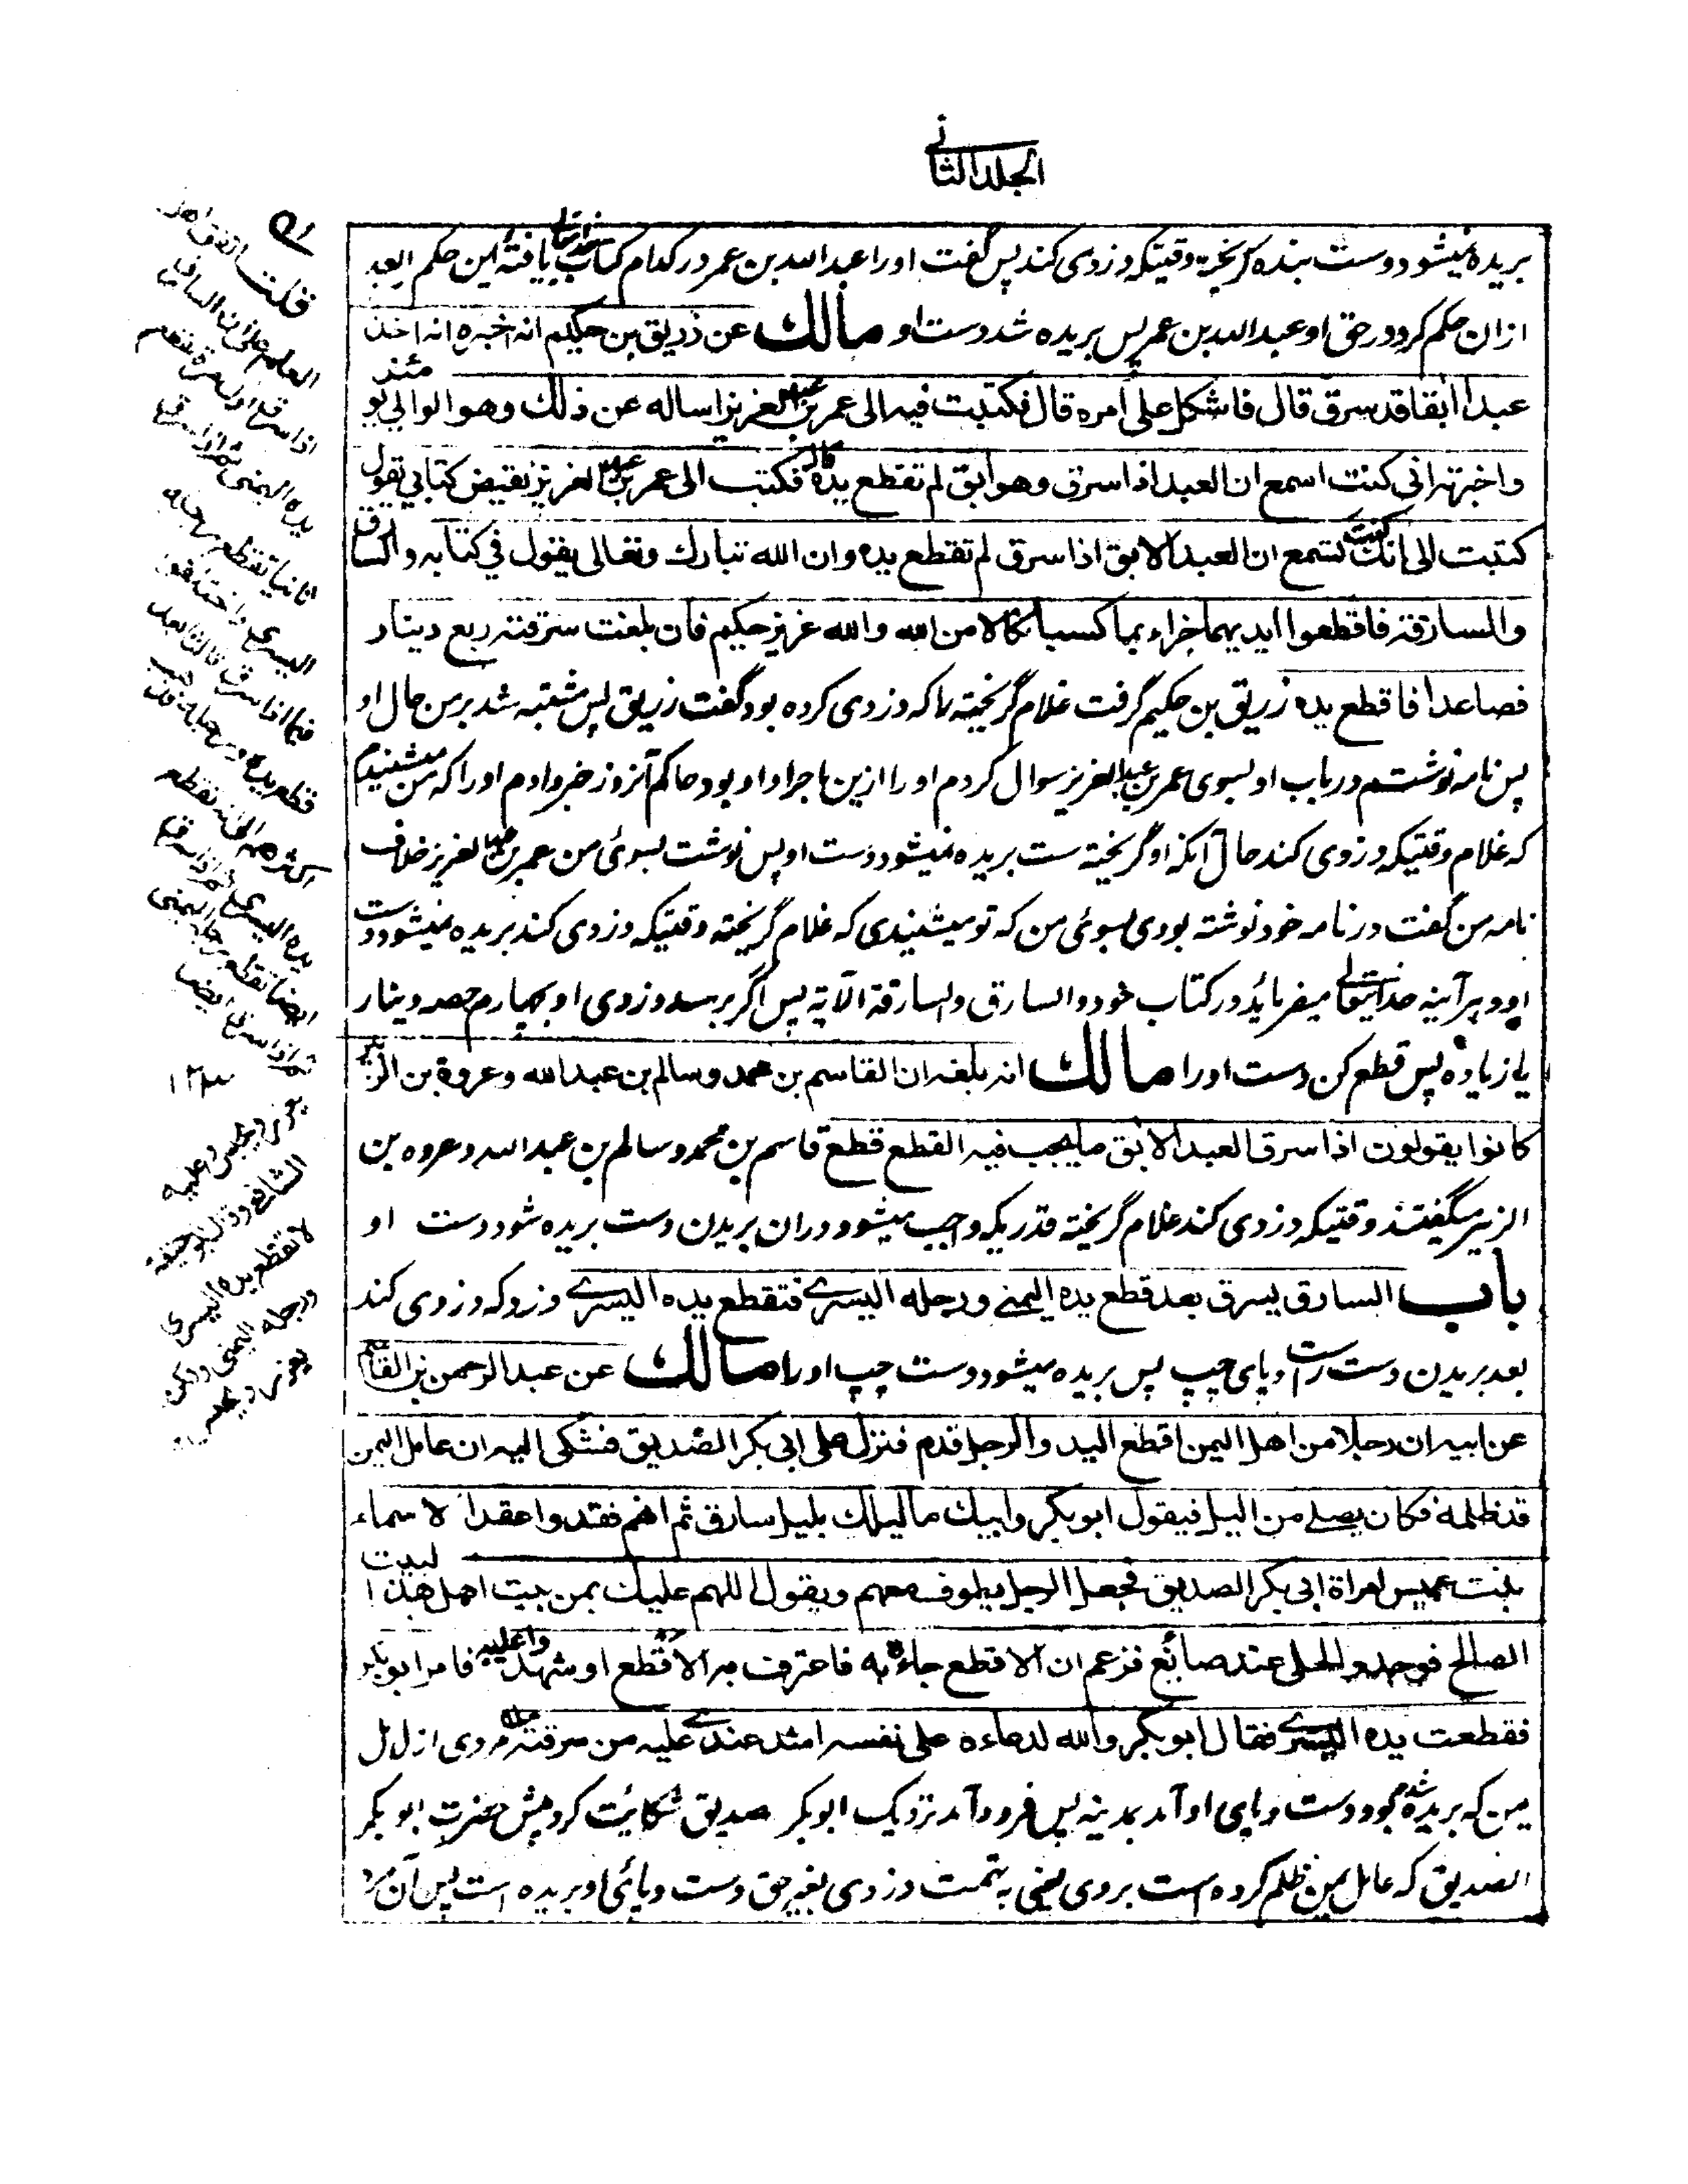 الجلد الثاني
بریده نمیشود دست بنده گریخته وقتیکه دزدی کند پس گفت اورا عبدالله بن عمر در کدام کتاب خدایتعالی یافتهٔ این حکم بعد
ازان حکم کرد در حق او عبدالله بن عمر پس بریده شد دست او مالك عن زريق بن حكيم انه اخبره انه اخذ
عبدا آبقا قد سرق قال فاشكل علي امره قال فكتبت فيه الى عمر بن عبد العزيز اساله عن ذلك وهو الوالي يومئذ
واخبرته اني كنت اسمع ان العبد اذا سرق وهو آبق لم تقطع يده قال فكتب الى عمر بن عبد العزيز نقيض كتابي يقول
كتبت الي انك كنت تسمع ان العبد الآبق اذا سرق لم تقطع يده وان الله تبارك وتعالى يقول في كتابه والسارق
والسارقة فاقطعوا ايديهما جزاء بما كسبا نكالا من الله والله عزيز حكيم فان بلغت سرقته ربع دينار
فصاعدا فاقطع يده زریق بن حکیم گرفت غلام گریخته را که دزدی کرده بود گفت زریق پس مشتبه شد بر من حال او
پس نامه نوشتم در باب او بسوی عمر بن عبد العزیز سوال کردم اورا ازین ماجرا و او بود حاکم آنروز خبر دادم اورا که من میشنیدم
که غلام وقتیکه دزدی کند حال آنکه او گریخته ست بریده نمیشود دست او پس نوشت بسوئی من عمر بن عبد العزیز خلاف
نامه من گفت در نامه خود نوشته بودی بسوئی من که تو میشنیدی که غلام گریخته وقتیکه دزدی کند بریده نمیشود دست
او و هر آینه خدایتعالی میفرماید در کتاب خود والسارق والسارقة الآية پس اگر برسد دزدی او بچهارم حصه دینار
یا زیاده پس قطع کن دست اورا مالك انه بلغه ان القاسم بن محمد وسالم بن عبد الله وعروة بن الزبير
كانوا يقولون اذا سرق العبد الآبق ما يجب فيه القطع قطع قاسم بن محمد و سالم بن عبد الله و عروه بن
الزبیر میگفتند وقتیکه دزدی کند غلام گریخته قدریکه واجب میشود دران بریدن دست بریده شود دست او
باب السارق يسرق بعد قطع يده اليمنى ورجله اليسرى فتقطع يده اليسرى دزد که دزدی کند
بعد بریدن دست راست و پای چپ پس بریده میشود دست چپ اورا مالك عن عبد الرحمن بن القاسم
عن ابيه ان رجلا من اهل اليمن اقطع اليد والرجل قدم فنزل على ابي بكر الصديق فشكى اليه ان عامل اليمن
قد ظلمه فكان يصلي من اليل فيقول ابو بكر وابيك ما ليلك بليل سارق ثم انهم فقدوا عقدا لاسماء
بنت عميس امراة ابي بكر الصديق فجعل الرجل يطوف معهم ويقول اللهم عليك بمن بيت اهل هذا البيت
الصالح فوجدوا الحلي عند صائغ فزعم ان الاقطع جاءه به فاعترف به الاقطع او شهد عليه فامر ابو بكر
فقطعت يده اليسرى فقال ابو بكر والله لدعاءه على نفسه اشد عندي عليه من سرقته مردی از اهل
یمن که بریده شده بود دست و پای او آمد بمدینه پس فرود آمد نزدیک ابو بکر صدیق شکایت کرد پیش حضرت ابو بکر
الصدیق که عامل یمن ظلم کرده است بر وی یعنی به تهمت دزدی بغیر حق دست و پائی او بریده است پس آن مرد
قلت اتفق اهل
العلم على ان السارق
اذا سرق اول مرة تقطع
يده اليمنى ثم اذا سرق
ثانيا تقطع رجله
اليسرى واختلفوا
فيما اذا سرق ثالثا بعد
قطع يده ورجله فذهب
اكثرهم الى انه تقطع
يده اليسرى ثم اذا سرق
ايضا تقطع رجله اليمنى
ثم اذا سرق ايضا
يعزر ويحبس وعليه
الشافعي وقال ابو حنيفة
لا تقطع يده اليسرى
ورجله اليمنى ولكن
يعزر ويحبس